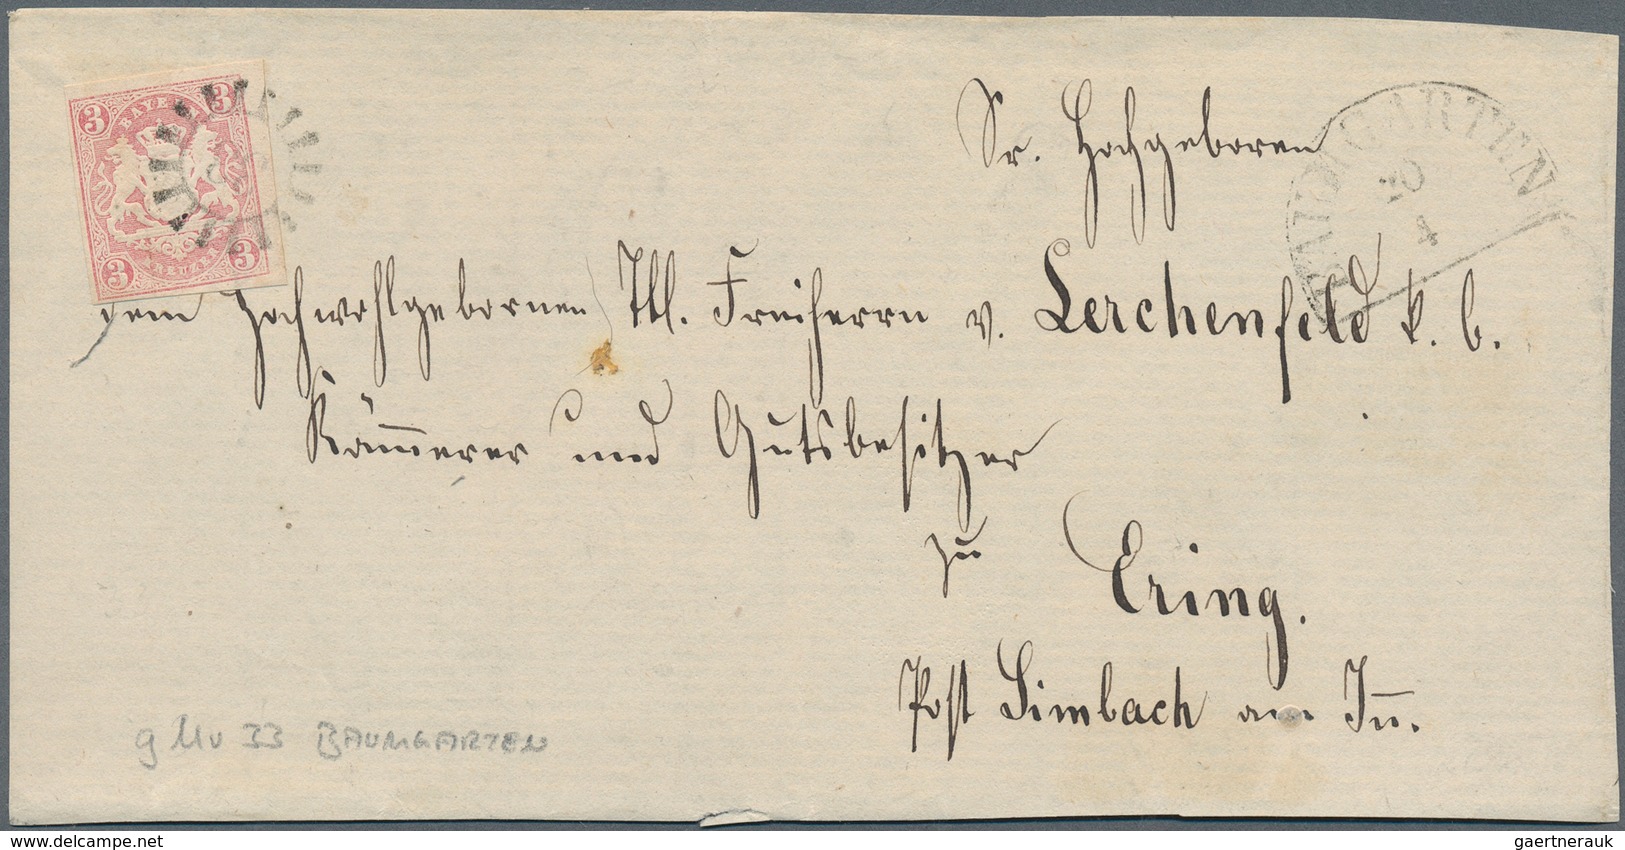 3 BAYERN 3
3 KREUZER 3
BAUMGARTEN
20
4
Sr. Hochgeboren
dem Hochwohlgebornen Ttl. Freiherrn v. Lerchenfeld k. b.
Kämerer und Gutsbesitzer
zu Ering.
Post Simbach am Iñ.
g Mu 33 BAUMGARTEN
www.delcampe.net
gaertnerauk